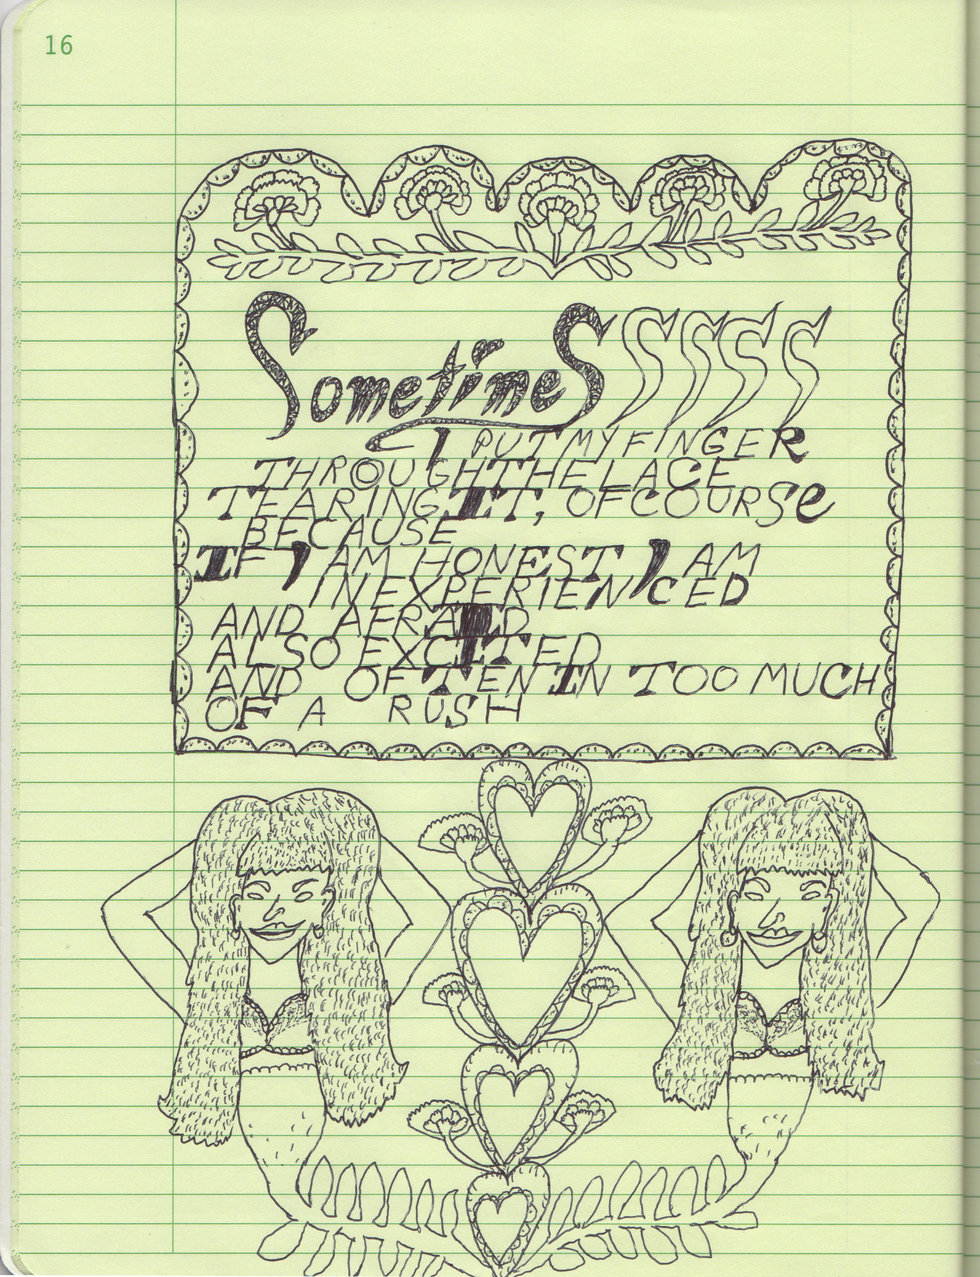 16
SometimeSSSSS
I PUT MY FINGER
THROUGH THE LACE
TEARING IT, OF COURSe
BECAUSE
IF I AM HONEST I AM
INEXPERIENCED
AND AFRAID
ALSO EXCITED
AND OFTEN IN TOO MUCH
OF A RUSH